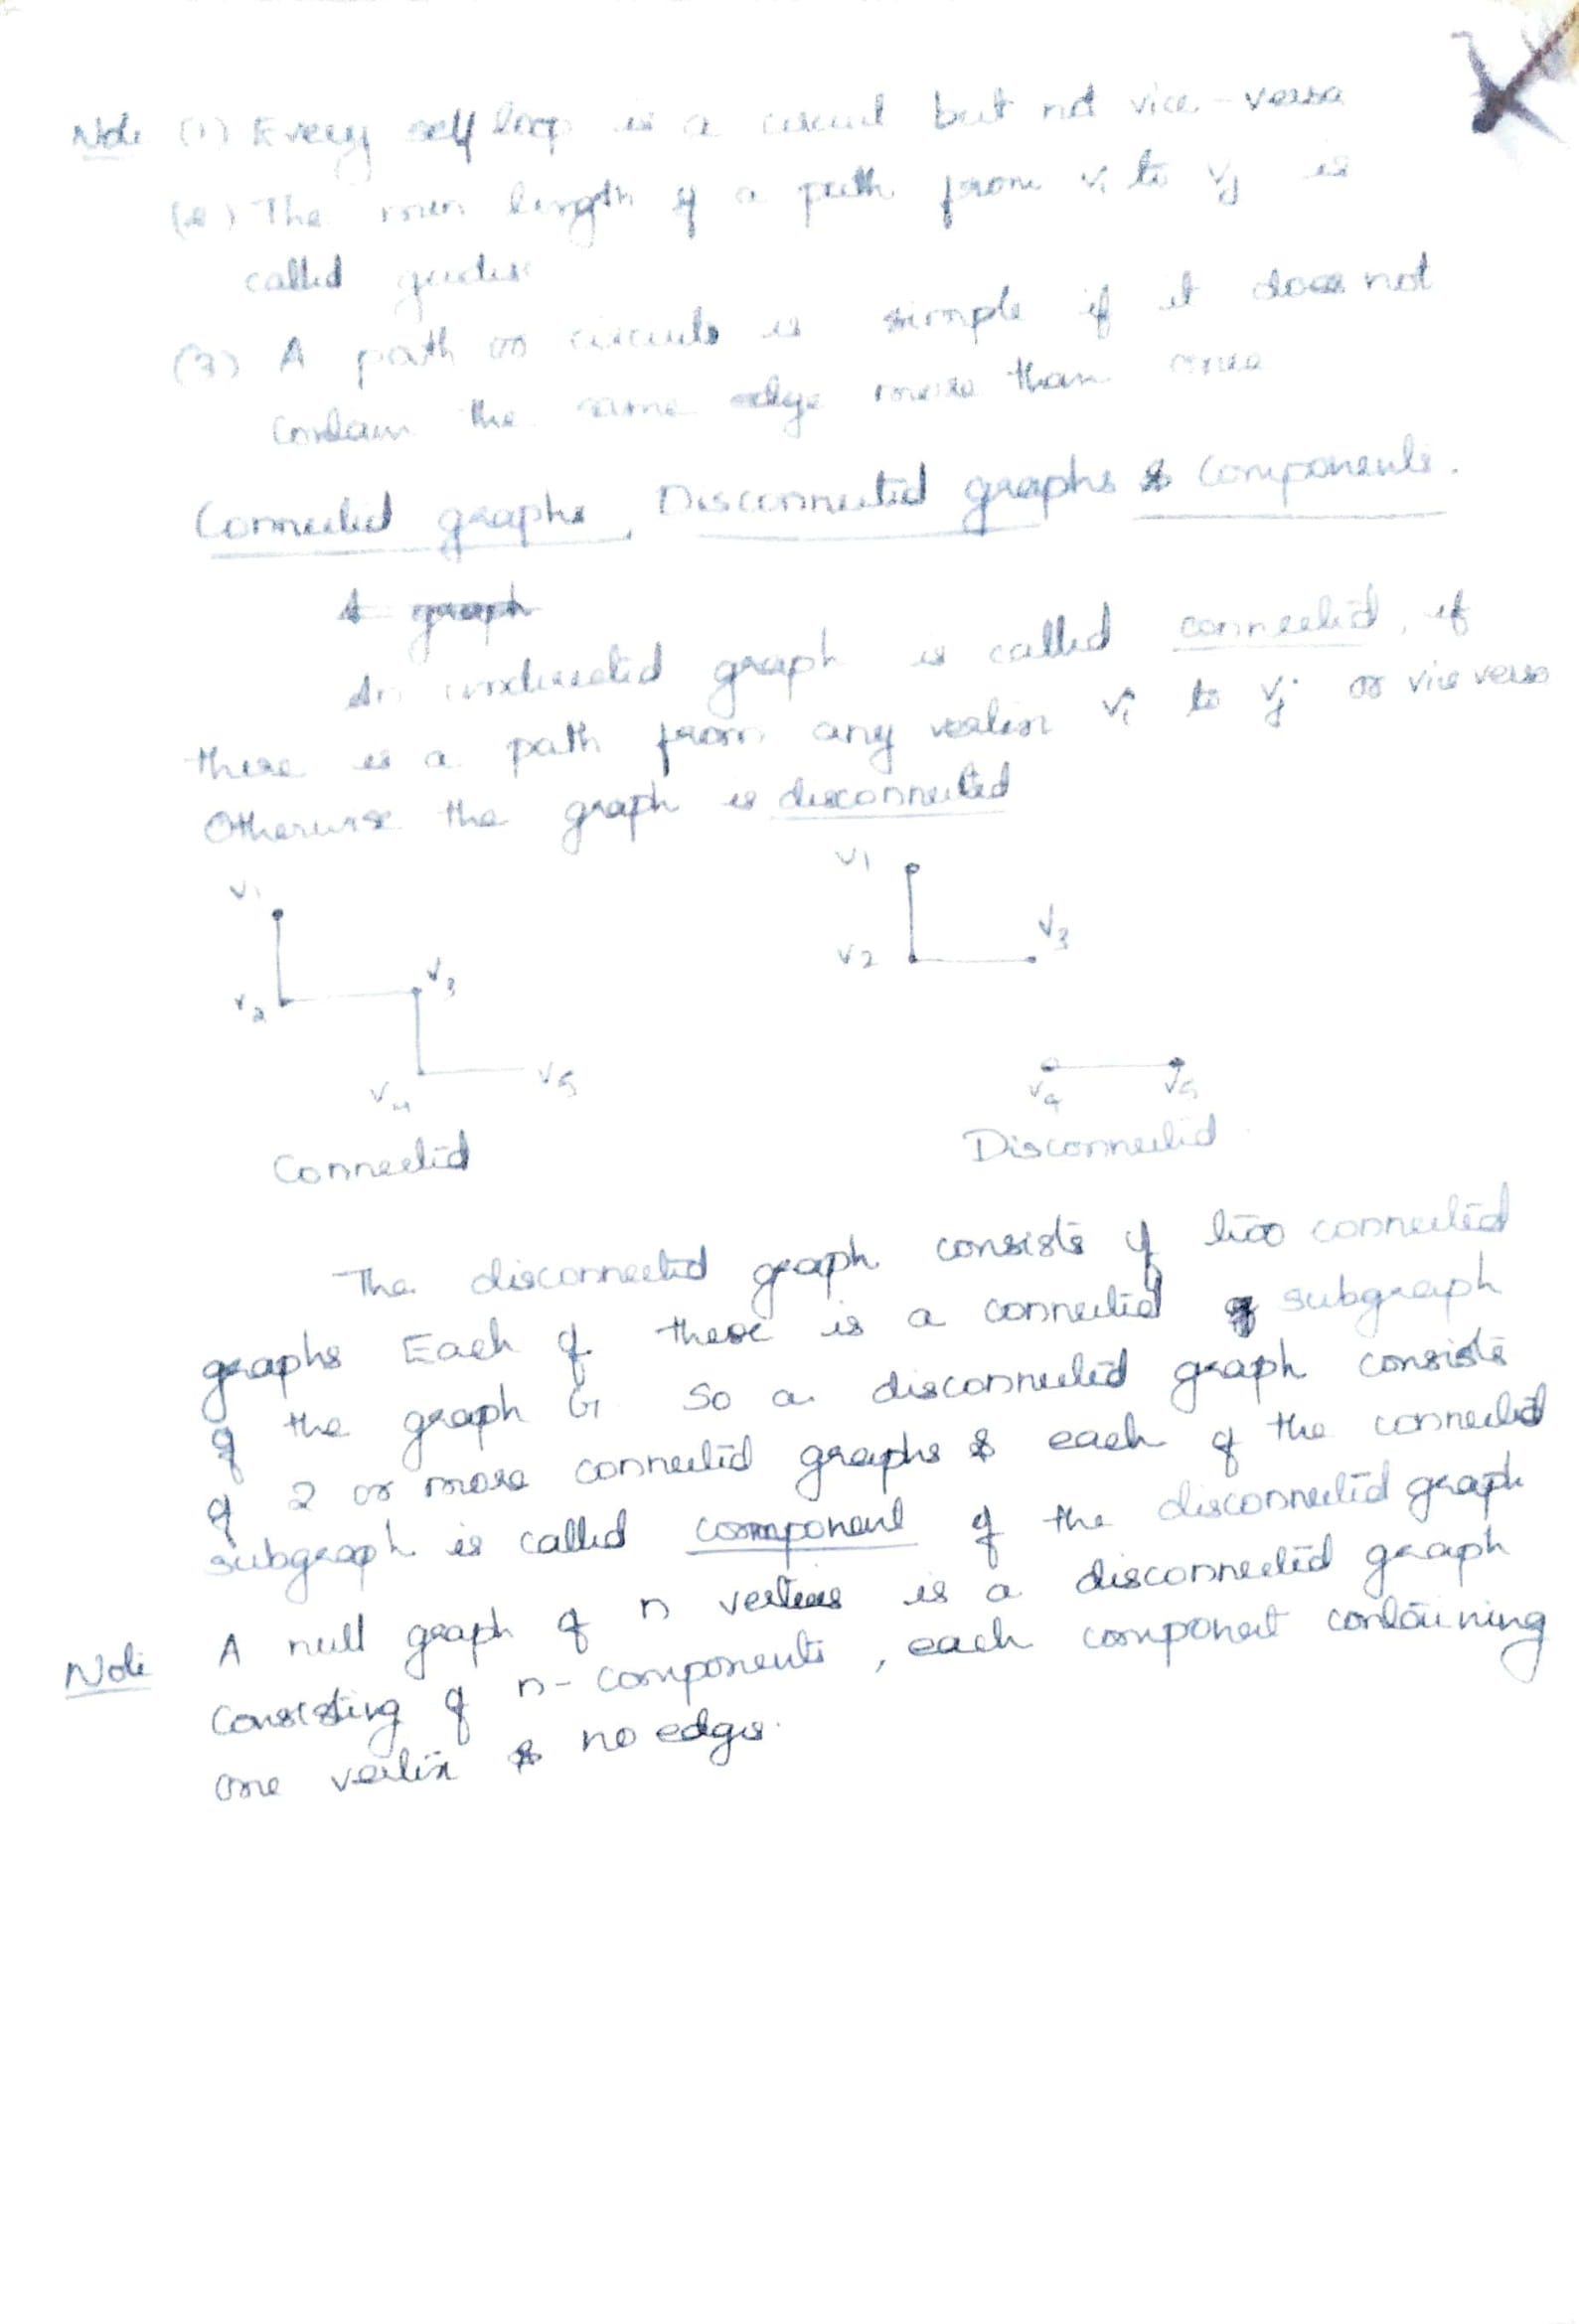 Note (1) Every self loop is a circuit but not vice-versa
(2) The min length of a path from vi to vj is
called
(3) A path or circuits is simple if it does not
Contain the same edge more than once
Connected graphs, Disconnected graphs & Components.
A graph
An undirected graph is called connected, if
there is a path from any vertex vi to vj or vice versa
Otherwise the graph is disconnected
v1
v1
v2
v3
v2
v3
v4
v5
v4
v5
Connected
Disconnected
The disconnected graph consists of two connected
graphs Each of these is a connected subgraph
of the graph G. So a disconnected graph consists
of 2 or more connected graphs & each of the connected
subgraph is called component of the disconnected graph
Note A null graph of n vertices is a disconnected graph
Consisting of n-components, each component containing
one vertex & no edges.